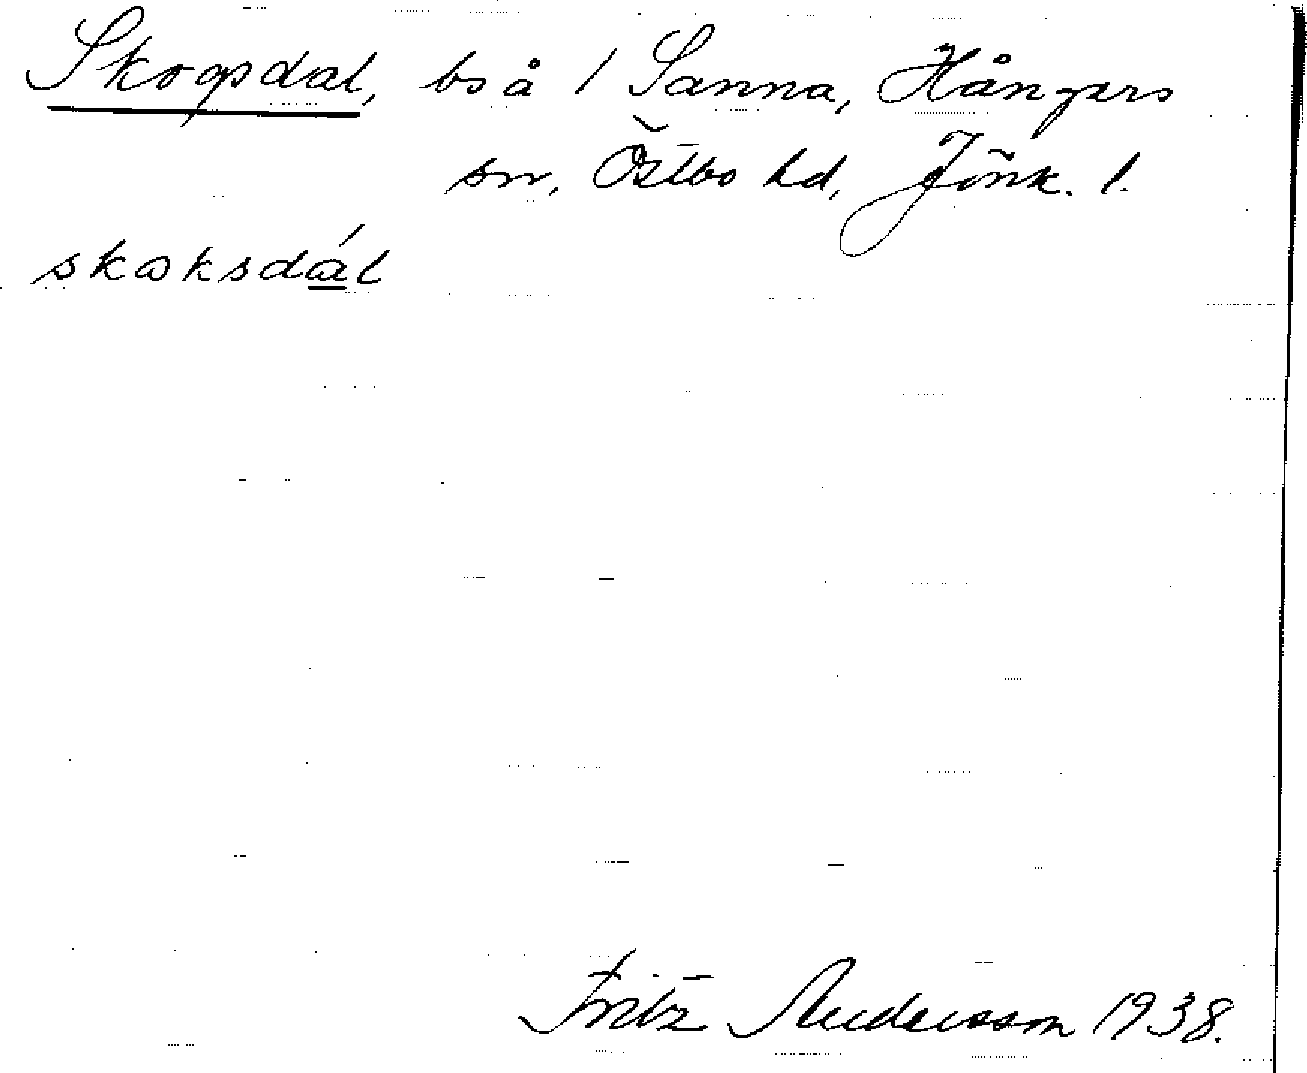 Skogsdal, bs å 1 Sanna, Hångers
sn, Östbo hd, Jönk. l.
skoksdál
Fritz Andersson 1938.